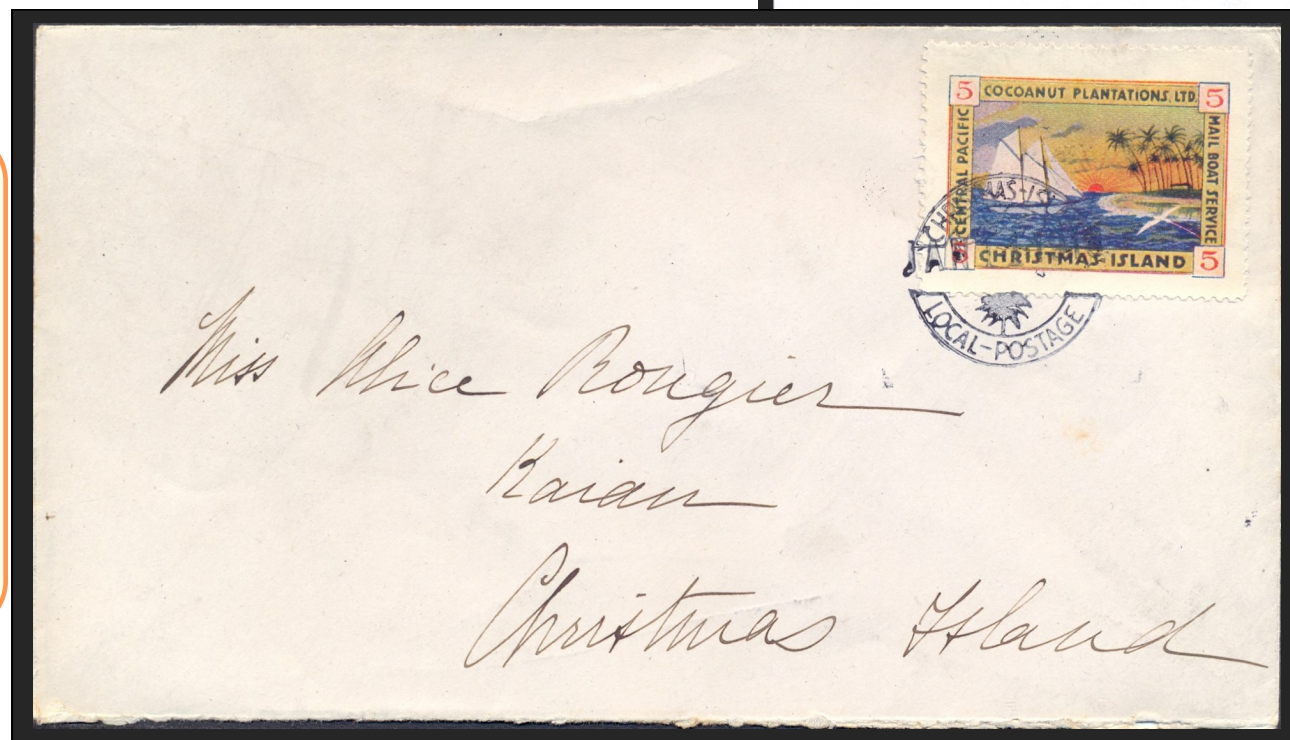 5 COCOANUT PLANTATIONS LTD 5
CENTRAL PACIFIC
MAIL BOAT SERVICE
5 CHRISTMAS ISLAND 5
LOCAL-POSTAGE
Miss Alice Rougier
Christmas Island